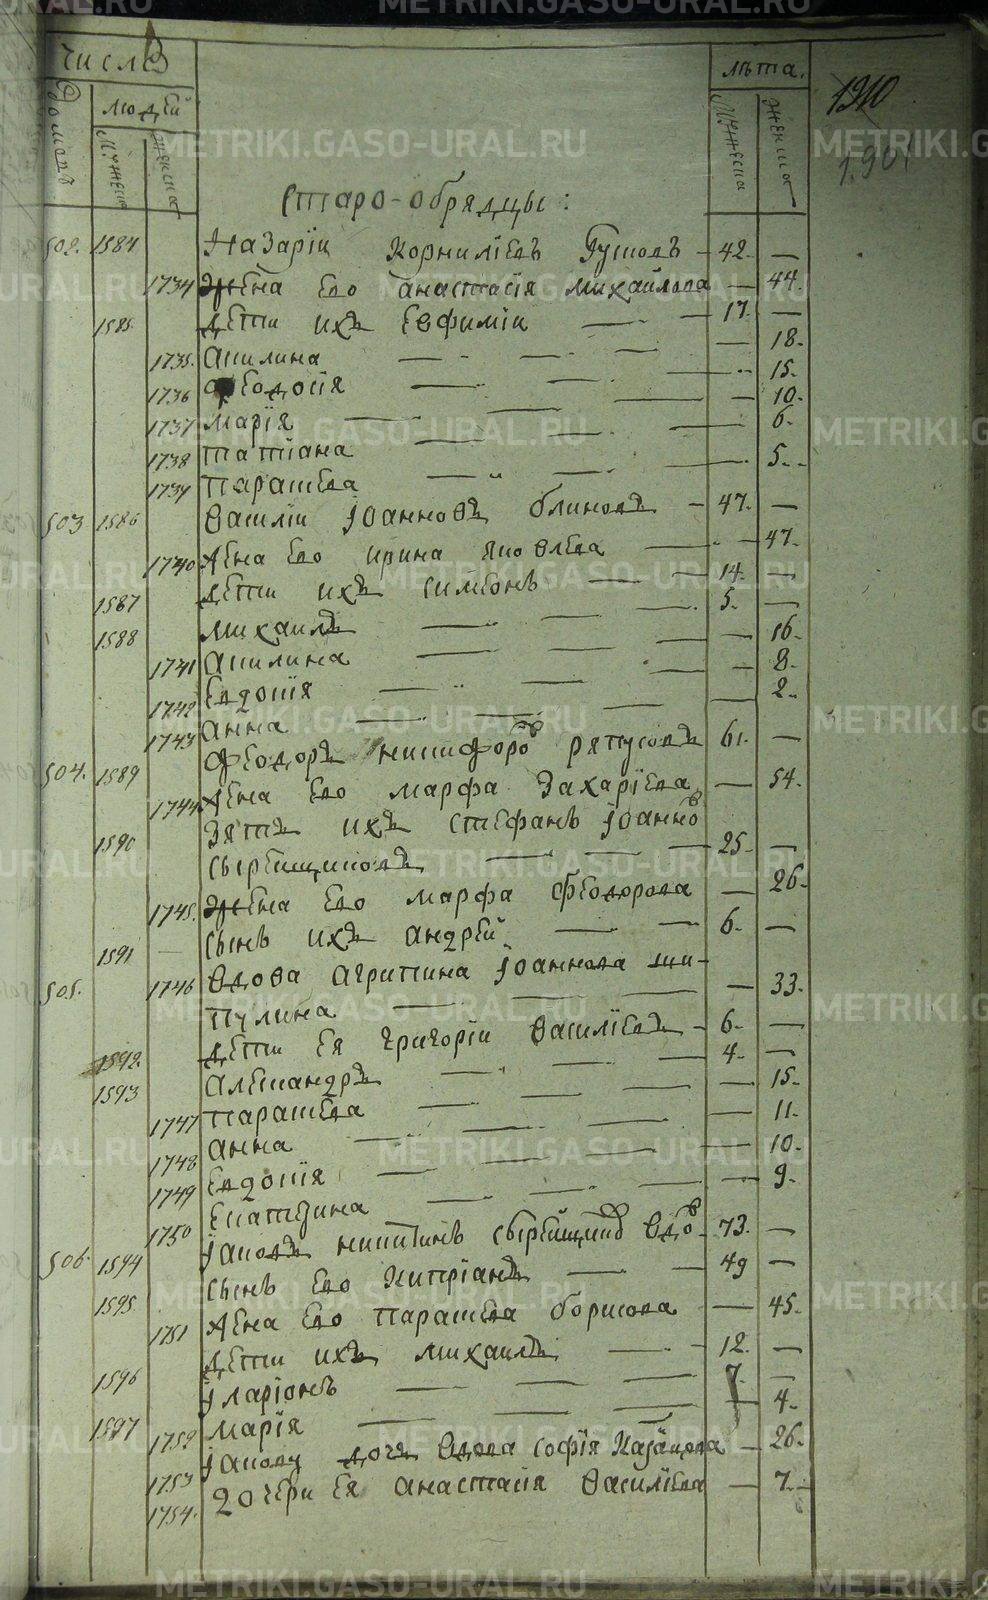 Число
лѣта.
Домовъ
людей
мужеска
женска
мужеска
женска
1910
1.901
Старо-обрядцы:
502. 1584 Назарiи Корнилiевъ Гусковъ - 42. —
1734 Жена его Анастасiя Михайлова — 44.
1585. Дети ихъ Евфимiи — — 17. —
1735. Акилина — — — — 18.
1736 Феодосiя — — — — 15.
1737 Марiя — — — — 10.
1738 Татiана — — — — 6.
1739 Парасева — — — — 5.
503 1586 Василiи Iоанновъ Блиновъ - 47. —
1740 Жена его Ирина Яковлева — — 47.
1587 Дети ихъ Симеонъ — — 14. —
1588 Михаилъ — — — 5. —
1741 Акилина — — — — 16.
1742 Евдокiя — — — — 8.
1743 Анна — — — — 2.
504. 1589 Феодоръ Никифоров 61. —
1744 Жена его Марфа Захарiева — 54.
1590 Зять ихъ Стефанъ Iоаннов
Сырейщиковъ — — — 25. —
1745. Жена его Марфа Феодорова — 26.
1591 — Сынъ ихъ Андрей — — 6. —
505. 1746 Вдова Агрипина Iоаннова Ши-
пулина — — — — 33.
1592. Дети ея Григорiи Василiевъ - 6. —
1593 Александръ — — — 4. —
1747 Парасева — — — — 15.
1748 Анна — — — — 11.
1749 Евдокiя — — — — 10.
1750 Екатерина — — — — 9.
506. 1594 Iаковъ Никитинъ Сырейщиков вдов - 73. —
1595 Сынъ его Кипрiанъ — — 49 —
1751 Жена его Парасева Борисова — 45.
1596 Дети ихъ Михаилъ — - 12. —
1597 Iларiонъ — — — 7. —
1752 Марiя — — — — 4.
1753 Iакову дочь вдова Софiя Казанцова — 26.
1754. Дочери ея Анастасiя Василiева — 7.
METRIKI.GASO-URAL.RU